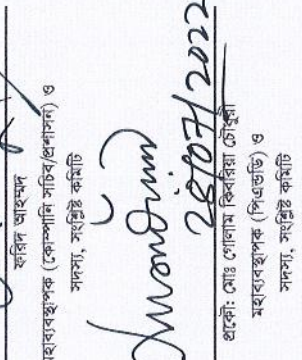 ফরিদ আহম্মদ
মহাব্যবস্থাপক (কোম্পানি সচিব/প্রশাসন) ও
সদস্য, সংশ্লিষ্ট কমিটি
28/07/2022
প্রকৌ: মোঃ গোলাম কিবরিয়া চৌধুরী
মহাব্যবস্থাপক (পিএন্ডডি) ও
সদস্য, সংশ্লিষ্ট কমিটি